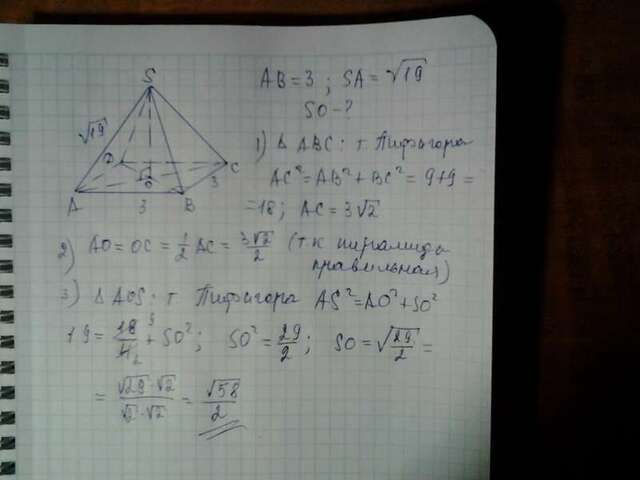 S
√19
D
C
O
3
A
3
B
AB = 3 ; SA = √19
SO - ?
1) △ ABC : т. Пифагора
AC² = AB² + BC² = 9+9 =
= 18; AC = 3√2
2) AO = OC = 1/2 AC = 3√2/2 (т.к пирамида
правильная)
3) △ AOS : т. Пифагора AS² = AO² + SO²
19 = 18 9/4 2 + SO² ; SO² = 29/2 ; SO = √29/2 =
= √29·√2/√2·√2 = √58/2